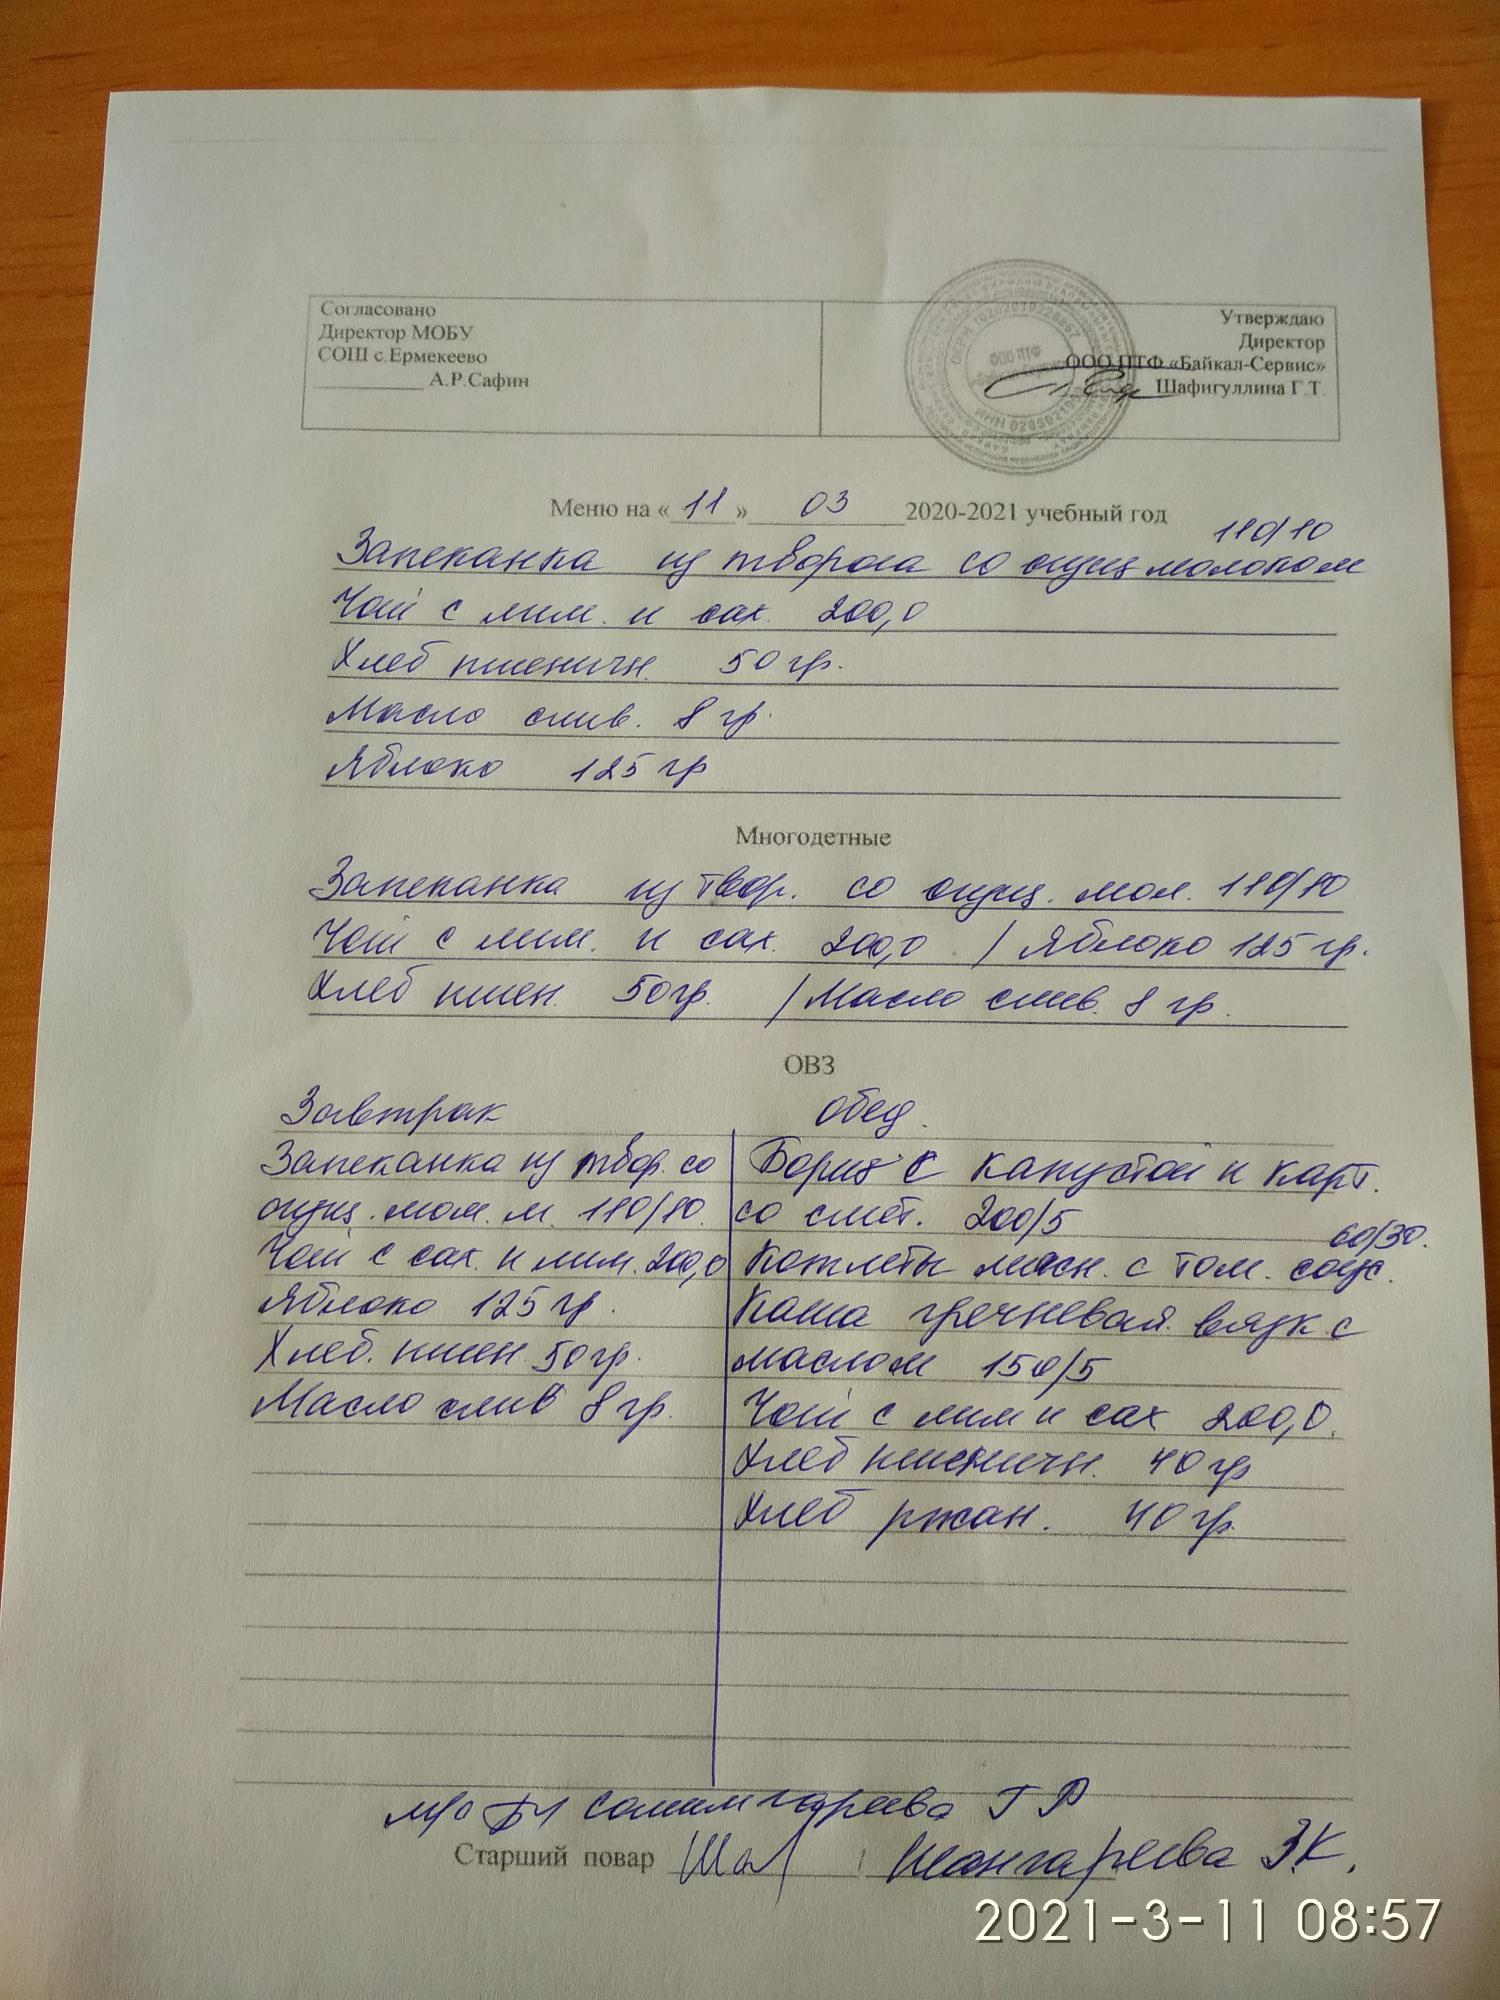 Согласовано
Директор МОБУ
СОШ с.Ермекеево
____________ А.Р.Сафин
Утверждаю
Директор
ООО ПТФ «Байкал-Сервис»
Шафигуллина Г.Т.
ООО ПТФ
Меню на « 11 » 03 2020-2021 учебный год
110/10
Запеканка из творога со сгущ молоком
Чай с лим. и сах. 200,0
Хлеб пшеничн. 50 гр.
Масло слив. 8 гр.
Яблоко 125 гр
Многодетные
Запеканка из твор. со сгущ. мол. 110/10
Чай с лим. и сах. 200,0 / Яблоко 125 гр.
Хлеб пшен. 50гр. / Масло слив. 8 гр.
ОВЗ
Завтрак
Запеканка из твор. со
сгущ. мол. м. 110/10.
Чай с сах. и лим. 200,0
Яблоко 125 гр.
Хлеб. пшен 50гр.
Масло слив 8 гр.
обед.
Борщ с капустой и карт.
со смет. 200/5
60/30.
Котлеты мясн. с том. соус.
Каша гречневая вязк с
маслом 150/5
Чай с лим и сах 200,0.
Хлеб пшеничн. 40 гр
Хлеб ржан. 40 гр.
Салимгареева Г Р
Старший повар Шангареева З.К.
2021-3-11 08:57